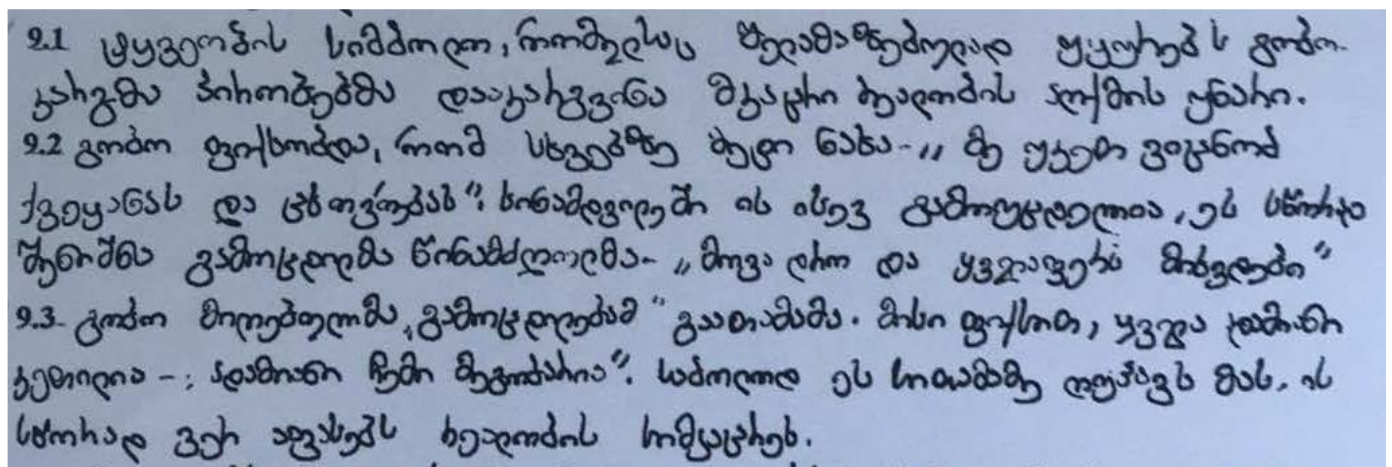 2.1 ტყვეობის სიმბოლო, რომელსაც შელამაზებულად უყურებს გოჩო.
კარგმა პირობებმა დააკარგვინა მკაცრი რეალობის აღქმის უნარი.
2.2 გოჩო ფიქრობდა, რომ სხვებზე მეტი ნახა - „ მე უკეთ ვიცნობ
ქვეყანას და ცხოვრებას“. სინამდვილეში ის ისევ გამოუცდელია, ეს სწორად
შენიშნა გამოცდილმა წინამძღოლმა - „მოვა დრო და ყველაფერს მიხვდები“
2.3 - გოჩო მიღებულმა „გამოცდილებამ“ გაათამამა. მისი ფიქრით, ყველა ადამიანი
კეთილია - „ ადამიანი ჩემი მეგობარია“. საბოლოოდ ეს სითამამე ღუპავს მას. ის
სწორად ვერ აფასებს რეალობის სიმკაცრეს.